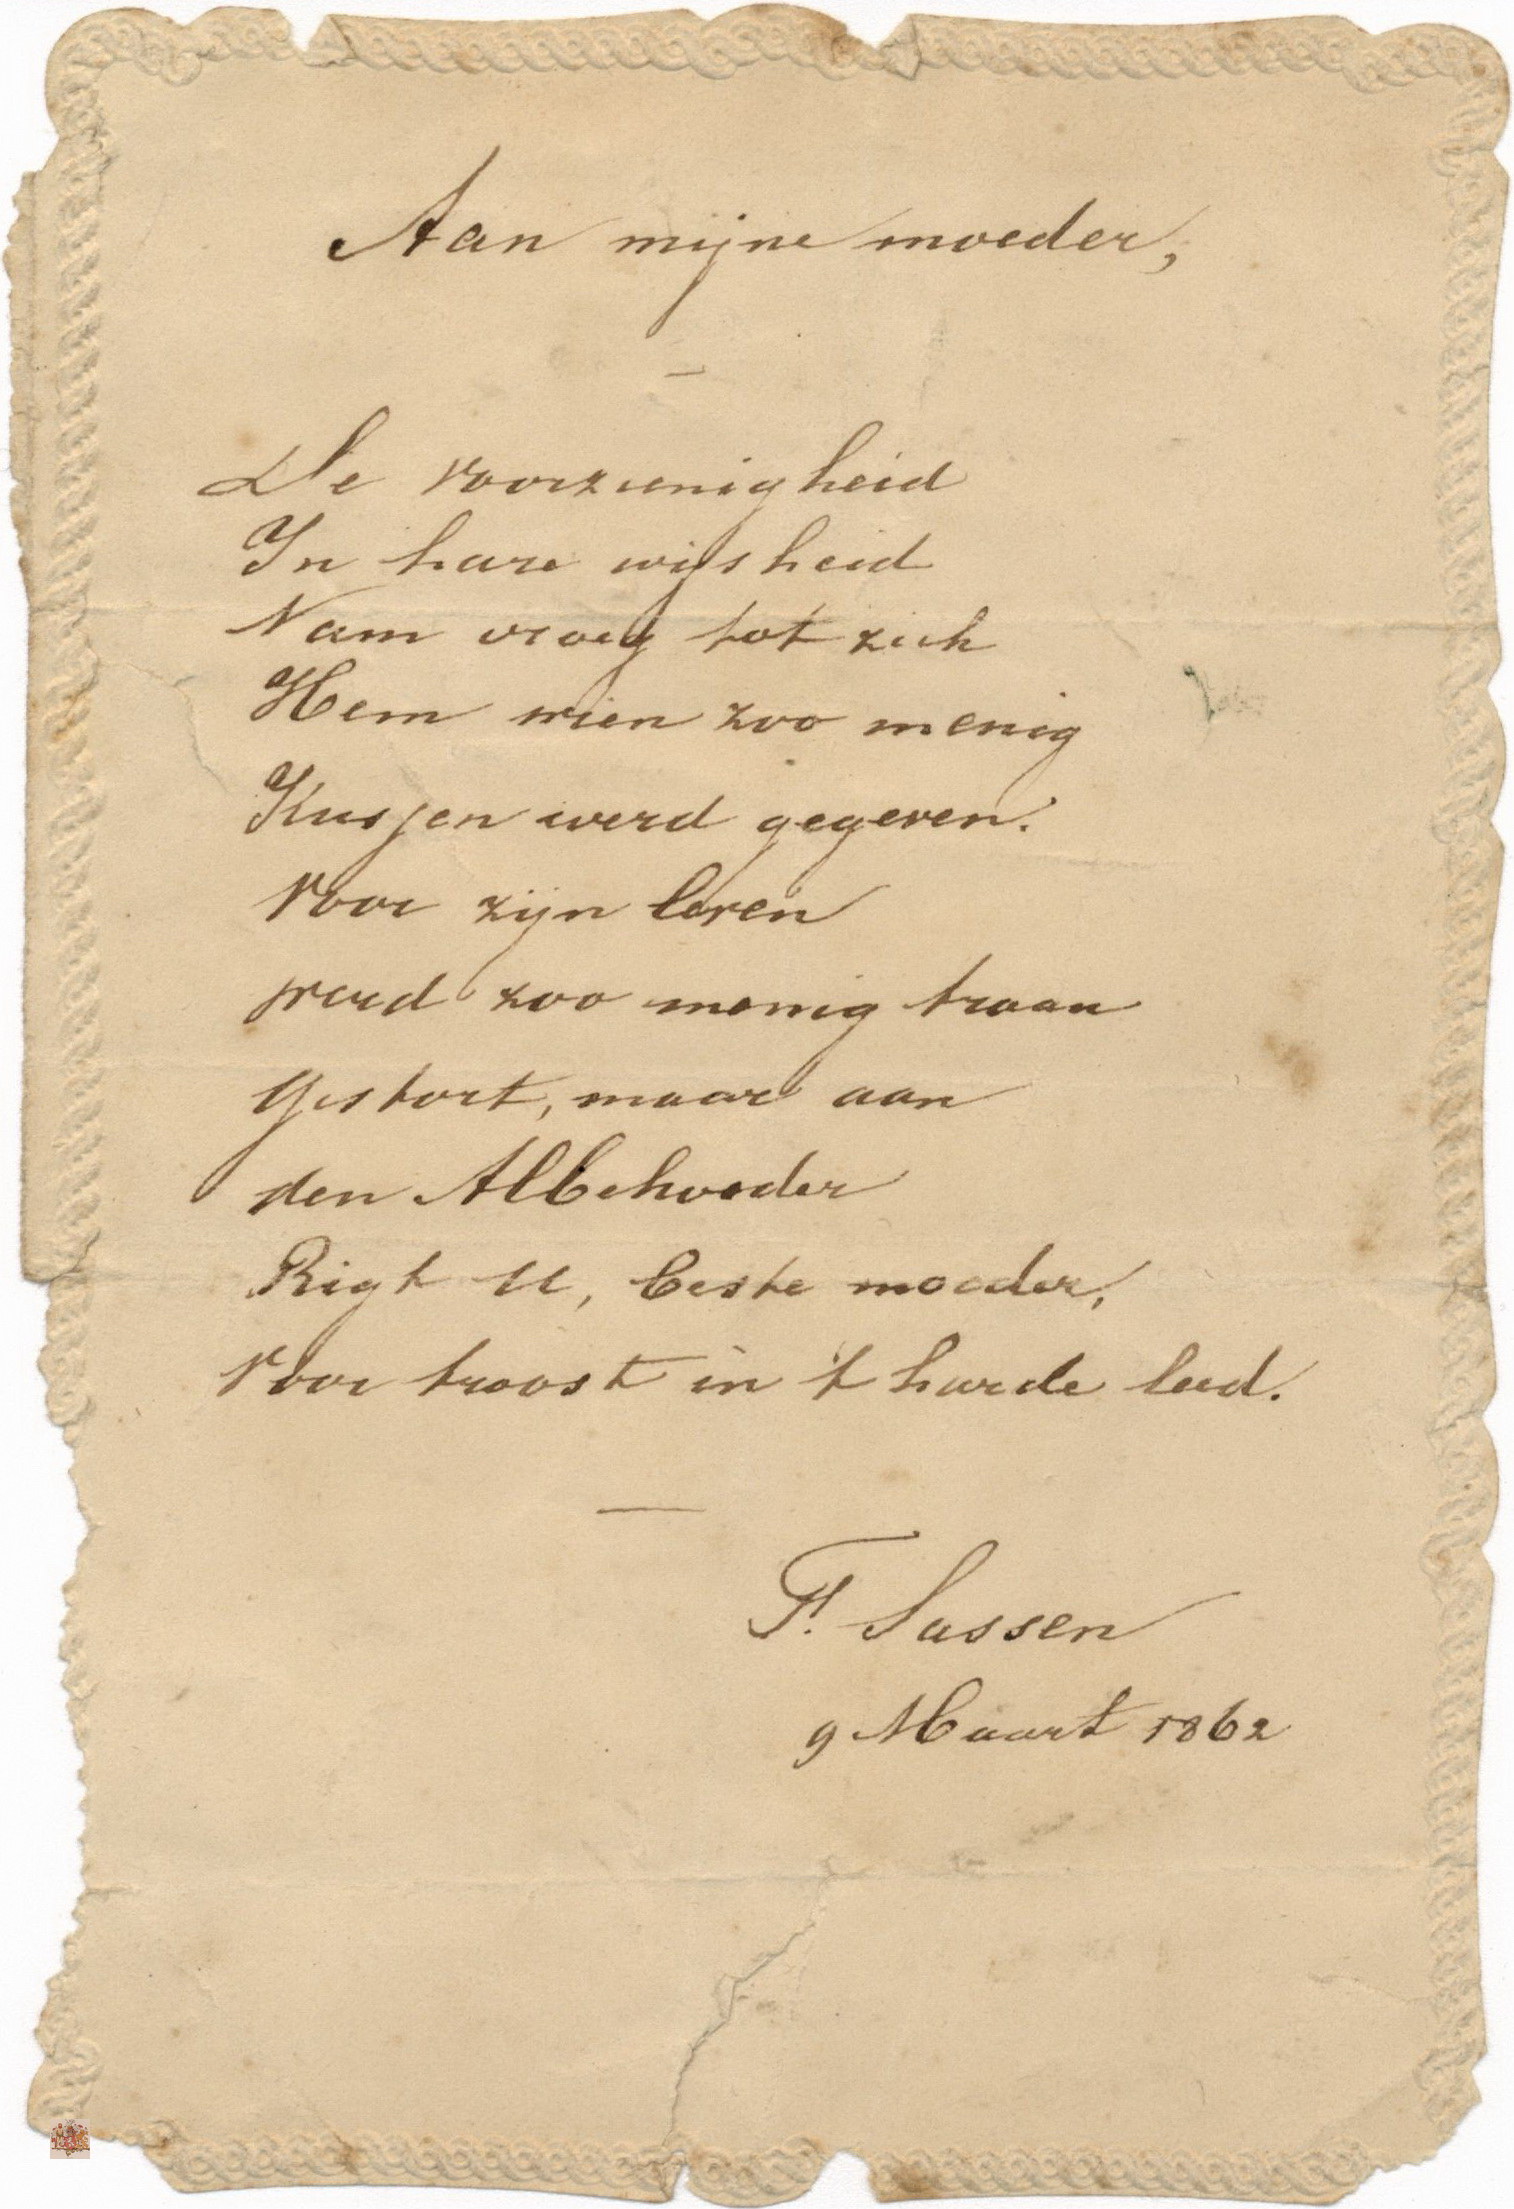 Aan mijne moeder,
De voorzienigheid
In hare wijsheid
Nam vroeg tot zich
Hem wien zoo menig
Kusjen werd gegeven.
Voor zijn leven
werd zoo menig traan
Gestort, maar aan
den Albehoeder
Rigt U, beste moeder,
Voor troost in 't harde leed.
F. Sassen
9 Maart 1862